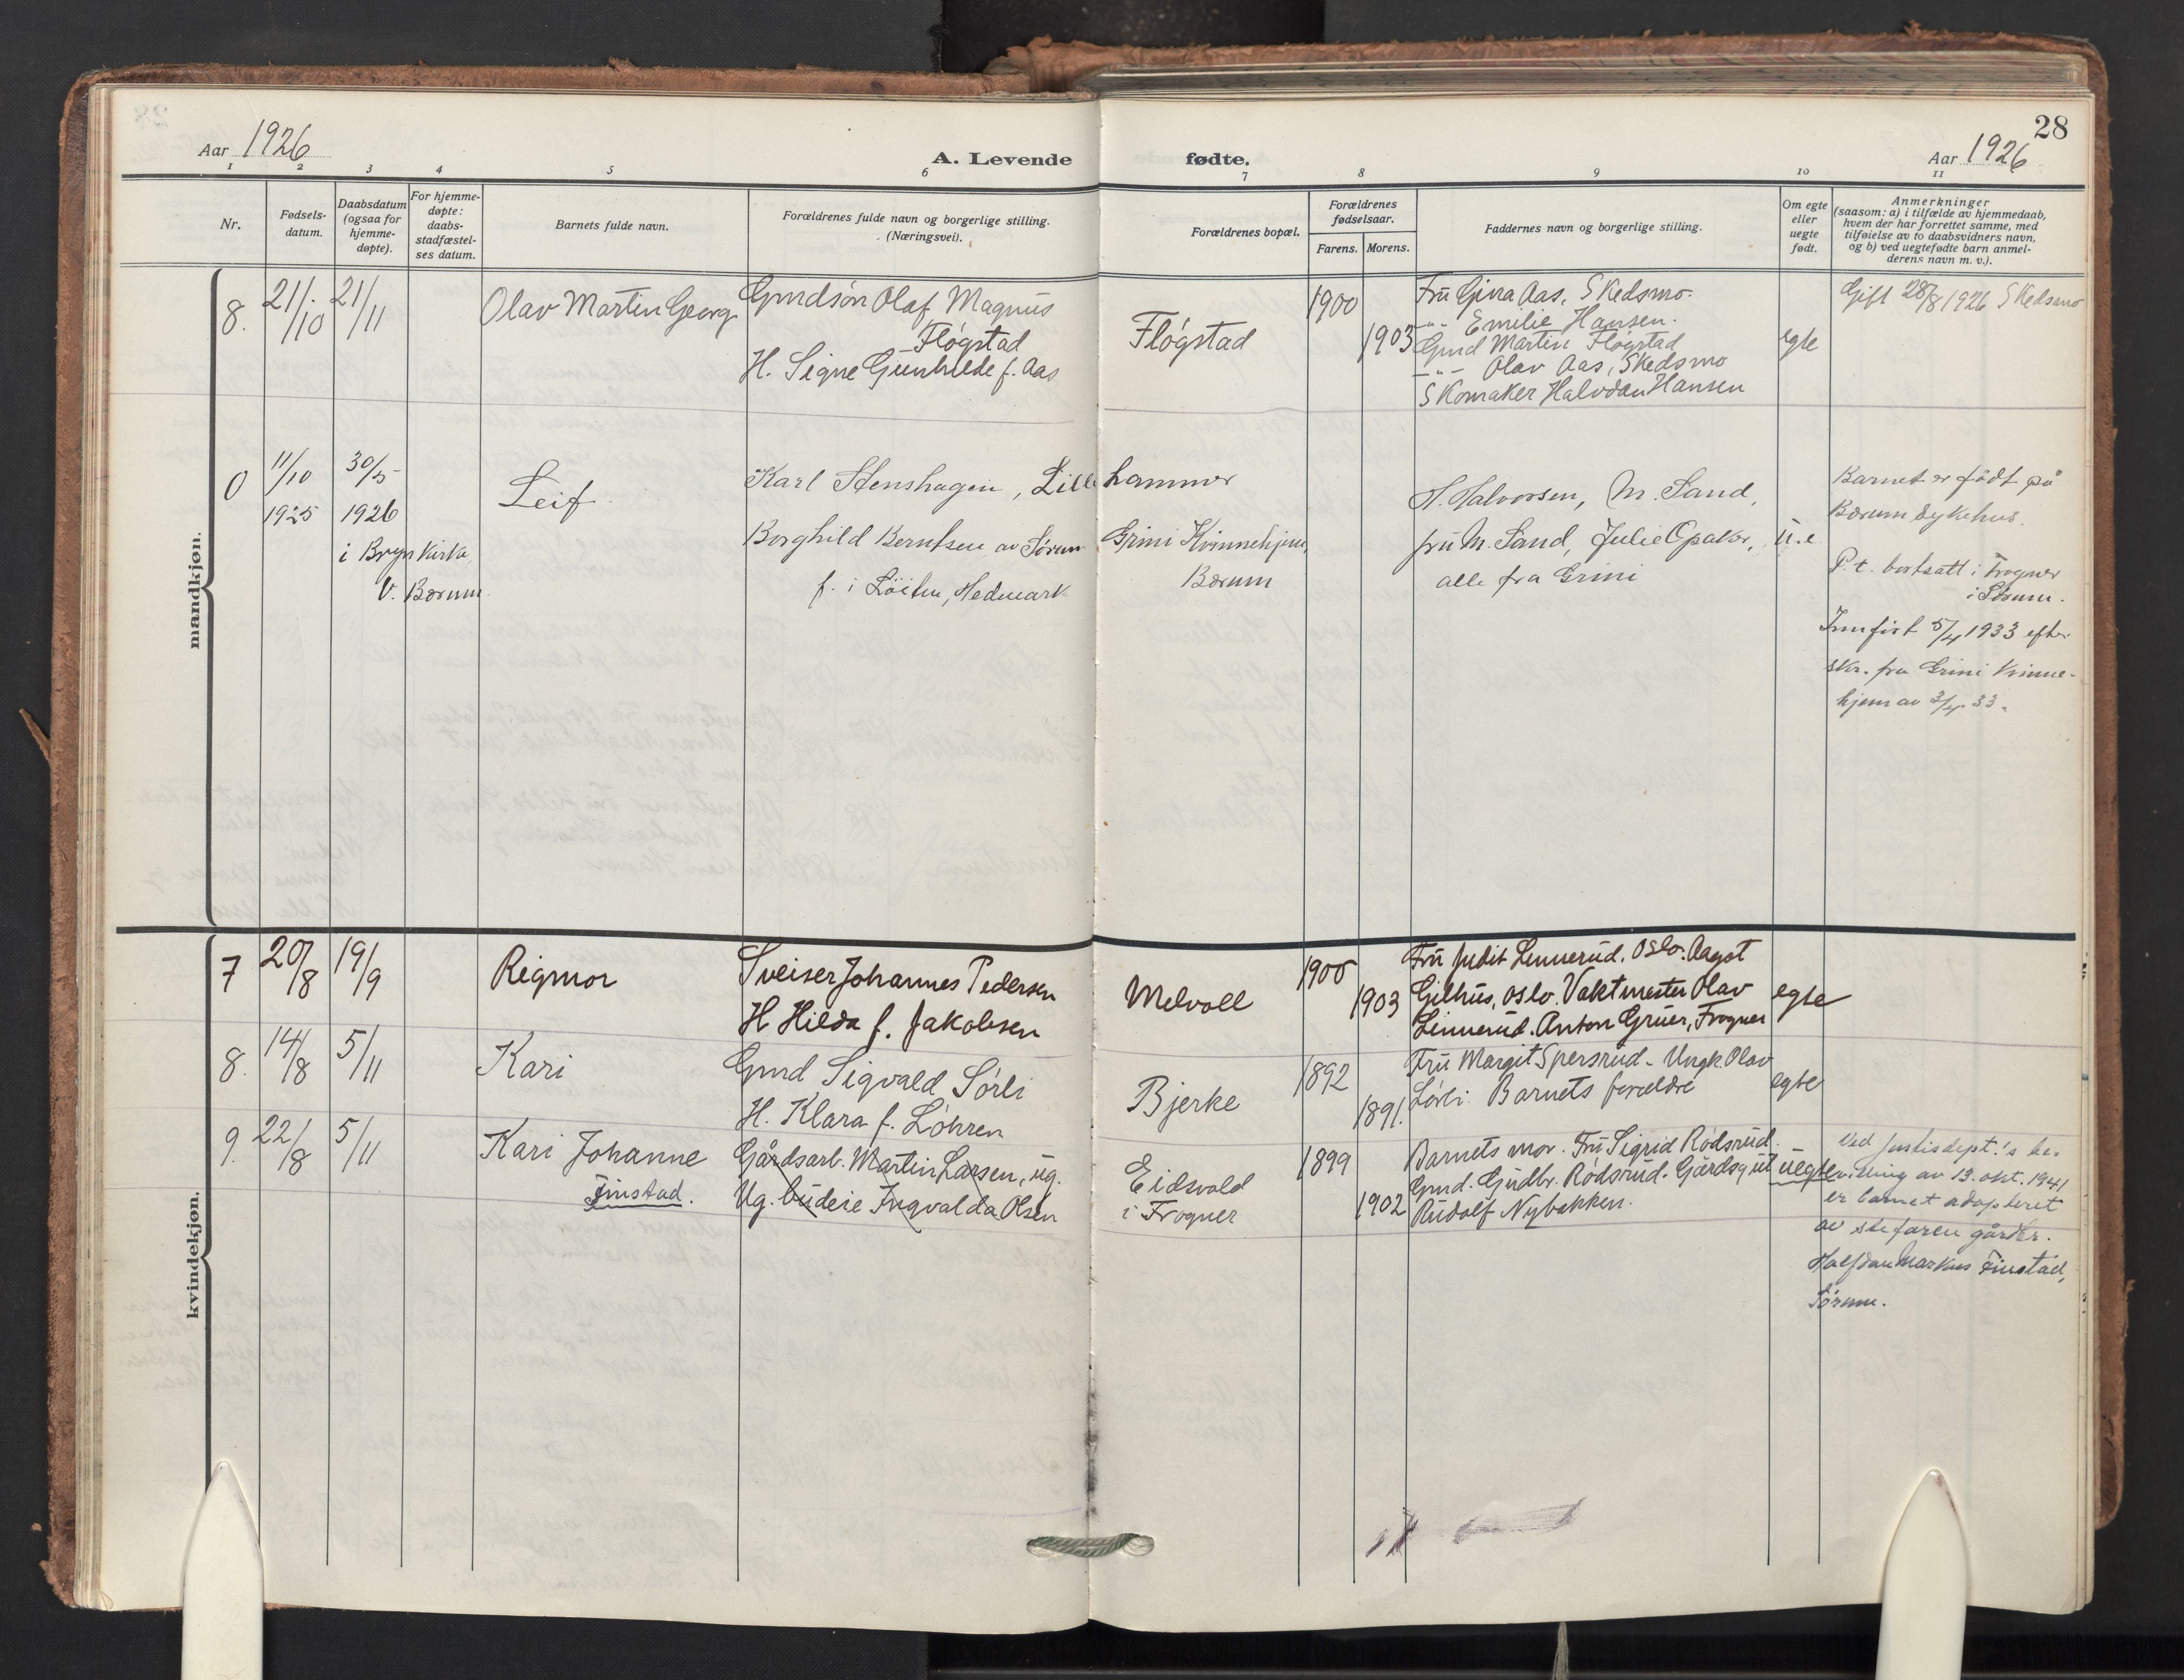 28
Aar 1926
A. Levende fødte.
Aar 1926
1 2 3 4 5 6 7 8 9 10 11
Nr.
Fødsels-
datum.
Daabsdatum
(ogsaa for
hjemme-
døpte).
For hjemme-
døpte:
daabs-
stadfæstel-
ses datum.
Barnets fulde navn.
Forældrenes fulde navn og borgerlige stilling.
(Næringsvei).
Forældrenes bopæl.
Forældrenes
fødselsaar.
Farens. Morens.
Faddernes navn og borgerlige stilling.
Om egte
eller
uegte
født.
Anmerkninger
(saasom: a) i tilfælde av hjemmedaab,
hvem der har forrettet samme, med
tilføielse av to daabsvidners navn,
og b) ved uegtefødte barn anmel-
derens navn m. v.).
mandkjøn.
8. 21/10 21/11
Olav Martin Georg
Gmdsøn Olaf Magnus
Fløgstad
H. Signe Gunhilde f. Aas
Fløgstad
1900
1903
Fru Gina Aas, Skedsmo.
-"- Emilie Hansen.
Gmd Martin Fløgstad
-"- Olav Aas, Skedsmo
Skomaker Halvdan Hansen
egte
Gift 28/8 1926 Skedsmo
0
11/10
1925
30/5
1926
i Bryn Kirke
V. Bærum
Leif
Karl Stenshagen, Lillehammer
Borghild Berntsen av Sørum
f. i Löiten, Hedmark
Grini Kvinnehjem,
Bærum
H. Halvorsen, M. Sand,
fru M. Sand, Julie Opaker,
alle fra Grini
u.e
Barnet er födt på
Bærum Sykehus.
P.t. bortsatt i Frogner
i Sørum.
Innfört 5/4 1933 efter
skr. fra Grini Kvinne-
hjem av 3/4 33.
kvindekjøn.
7 20/8 19/9
Rigmor
Sveiser Johannes Pedersen
H Hilda f. Jakobsen
Melvoll
1900
1903
Fru Judit Linnerud. Oslo. Aagot
Gilhus, Oslo. Vaktmester Olav
Linnerud. Anton Gruer, Frogner
egte
8. 14/8 5/11
Kari
Gmd Sigvald Sørli
H. Klara f. Løhren
Bjerke
1892
1891.
Fru Margit Spersrud - Ungk. Olav
Sørli. Barnets foreldre
egte
9. 22/8 5/11
Kari Johanne
Finstad.
Gårdsarb. Martin Larsen, ug.
Ug. budeie Ingvalda Olsen
Eidsvold
i Frogner
1899
1902
Barnets mor. Fru Sigrid Rødsrud.
Gmd. Gudbr. Rødsrud. Gårdsgut
Rudolf Nybakken.
uegte
Ved Justisdept.'s be-
villing av 13. okt. 1941
er barnet adoptert
av stefaren gårdbr.
Halfdan Markus Finstad,
Sørum.